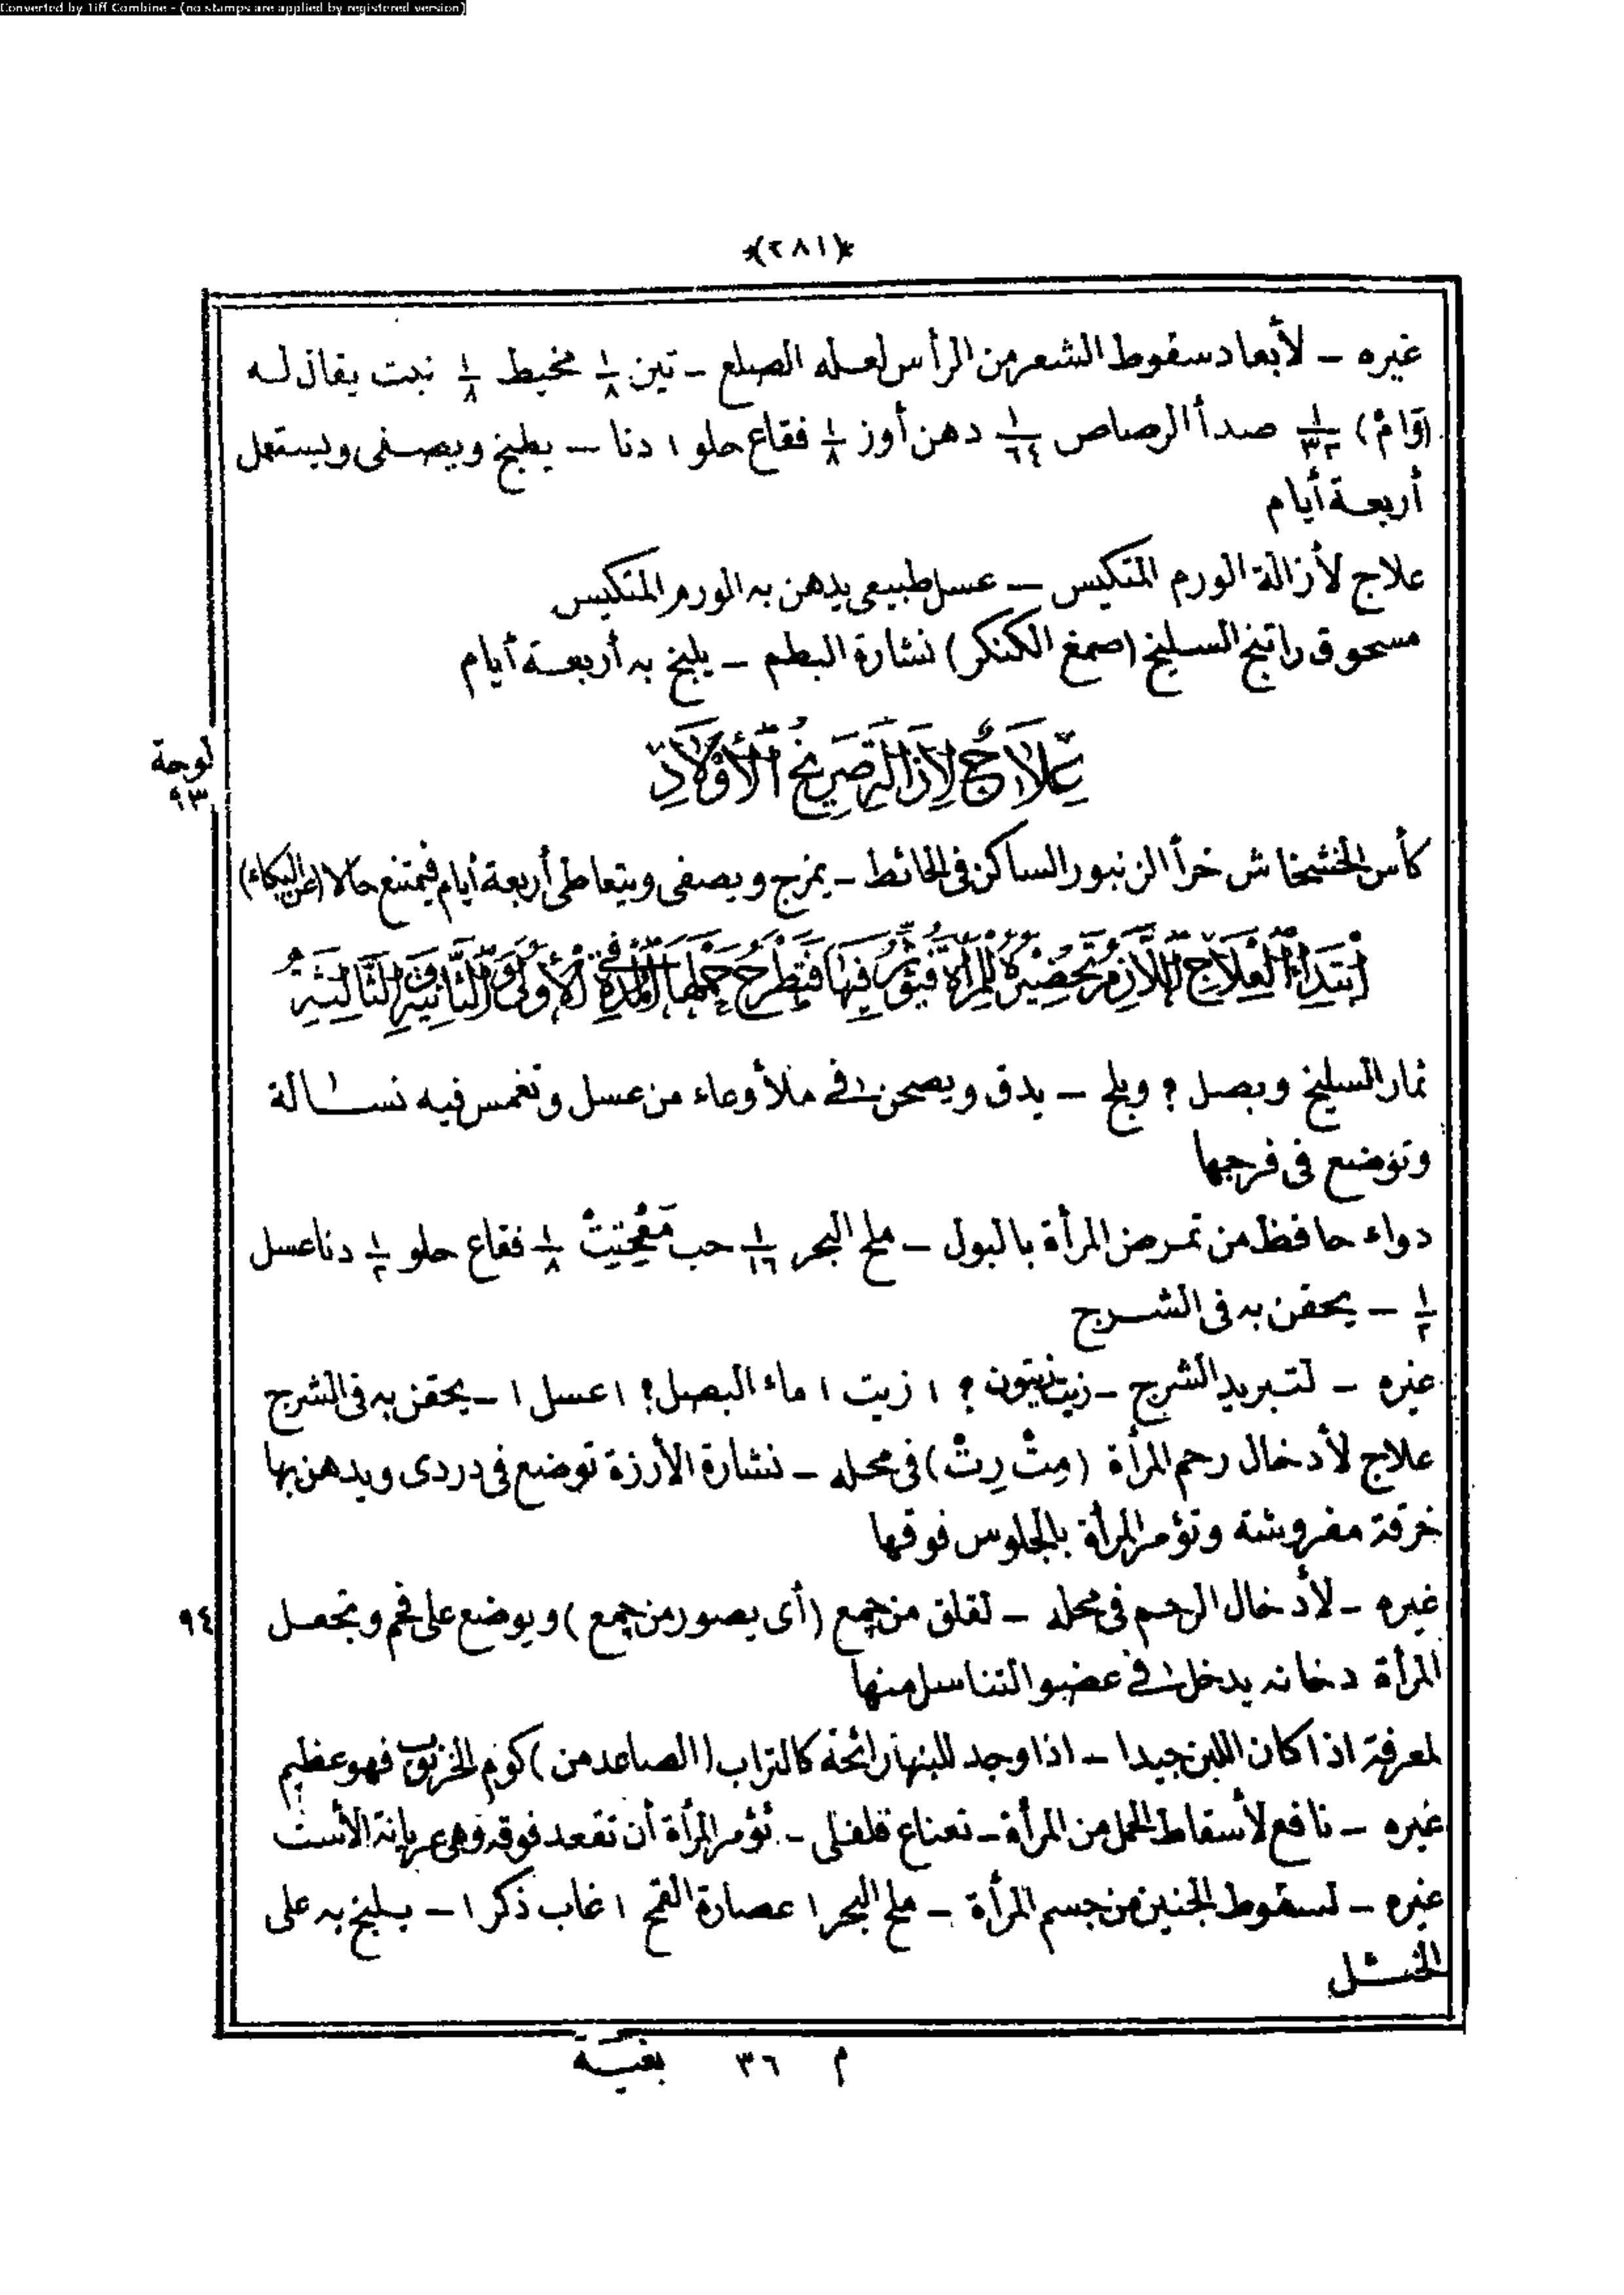 Converted by Tiff Combine - (no stamps are applied by registered version)
*(٢٨١)*
غيره – لأبعاد سقوط الشعر من الرأس لعله الصلع – تين ١/٨ مخيط ١/٨ نبت يقال له
(وَامْ) ١/٣٢ صدأ الرصاص ١/٦٤ دهن أوز ١/٨ فقاع حلو ١ دنا – يطبخ ويصفى ويستعمل
أربعة أيام
علاج لأزالة الورم المتكيس – عسل طبيعى يدهن به الورم المتكيس
مسحوق راتنج السليخ (صمغ الكنكر) نشارة البطم – يلبخ به أربعة أيام
عِلَاجٌ لِإزَالَةِ تَصْرِيخِ الْأَوْلَادِ
لوحة
٩٣
كأس الخشخاش خرأ الزنبور الساكن فى الحائط – يمزج ويصفى ويتعاطى أربعة أيام فيمتنع حالا (عن البكاء)
إبْتِدَاءُ الْعِلَاجِ اللَّازِمِ تَحْضِيرُهُ لِلْمَرْأَةِ فَيُؤَثِّرُ فِيهَا فَتَطْرَحُ حَمْلَهَا فِى الْمُدَّةِ الْأُولَى وَالثَّانِيَةِ وَالثَّالِثَةِ
ثمار السليخ وبصل ؟ وبلح – يدق ويصحن فى ملأ وعاء من عسل وتغمس فيه نسالة
وتوضع فى فرجها
دواء حافظ من تمرض المرأة بالبول – ملح البحر ١/١٦ حب ١/٨ فقاع حلو ١/٢ دنا عسل
١/٢ – يحقن به فى الشرج
غيره – لتبريد الشرج – زيت زيتون ؟ ١ زيت ١ ماء البصل ؟ ١ عسل ١ – يحقن به فى الشرج
علاج لأدخال رحم المرأة (مِتْ رِتْ) فى محله – نشارة الأرزة توضع فى دردى ويدهن بها
خرقة مفروشة وتؤمر المرأة بالجلوس فوقها
غيره – لأدخال الرحم فى محله – لقلق من جمع (أى يصور من جمع) ويوضع على فحم وتجعل
٩٤
المرأة دخانه يدخل فى عضو التناسل منها
لمعرفة اذا كان اللبن جيدا – اذا وجد للبنها رائحة كالتراب (الصاعد من) كوم الخرنوب فهو عظيم
غيره – نافع لأسقاط الحمل من المرأة – نعناع فلفلى – تؤمر المرأة أن تقعد فوقه وهى عريانة الأست
غيره – لسقوط الجنين من جسم المرأة – ملح البحر ١ عصارة القمح ١ غاب ذكر ١ – يلبخ به على
الخثل
م ٣٦ بغية